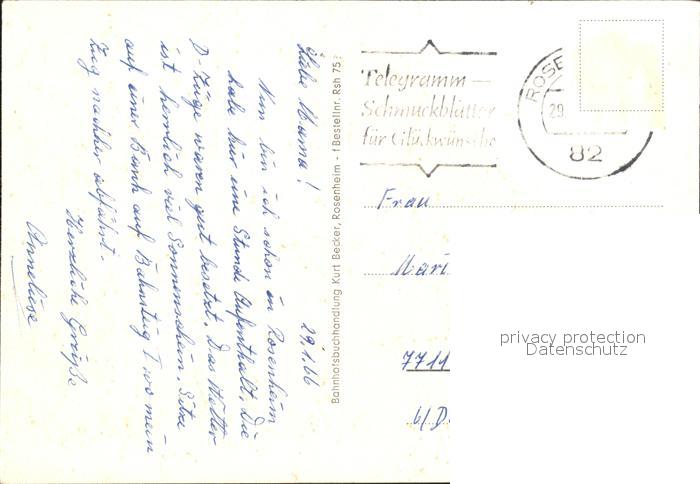 29.1.66
Liebe Mama!
Nun bin ich schon in Rosenheim
habe hier eine Stunde Aufenthalt. Die
D-Züge waren gut besetzt. Das Wetter
ist herrlich viel Sonnenschein. Sitze
auf einer Bank auf Bahnsteig I wo mein
Zug nachher abfährt.
Herzliche Grüße
Anneliese
Bahnhofsbuchhandlung Kurt Becker, Rosenheim - Bestellnr. Rsh 75
Telegramm —
Schmuckblätter
für Glückwünsche
ROSE
29.
82
Frau
Mari
7711
b/D
privacy protection
Datenschutz